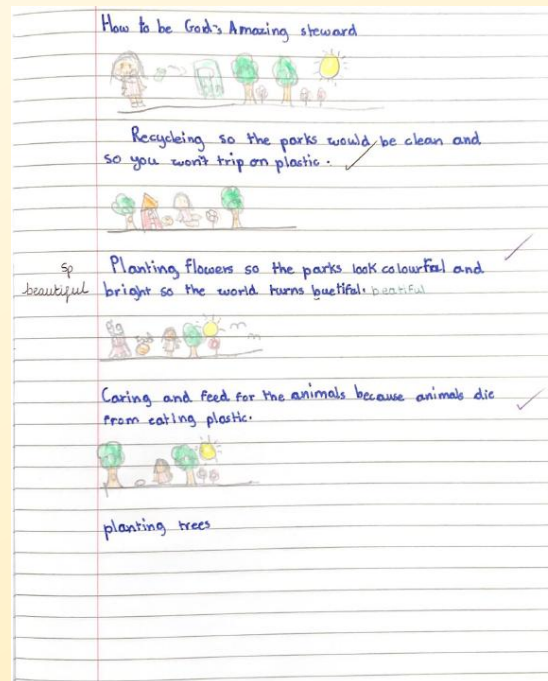 How to be God's Amazing steward
Bin
Recycleing so the parks would be clean and
so you won't trip on plastic.
sp
beautiful
Planting flowers so the parks look colourful and
bright so the world turns buetiful. beatiful
Caring and feed for the animals because animals die
from eating plastic.
planting trees